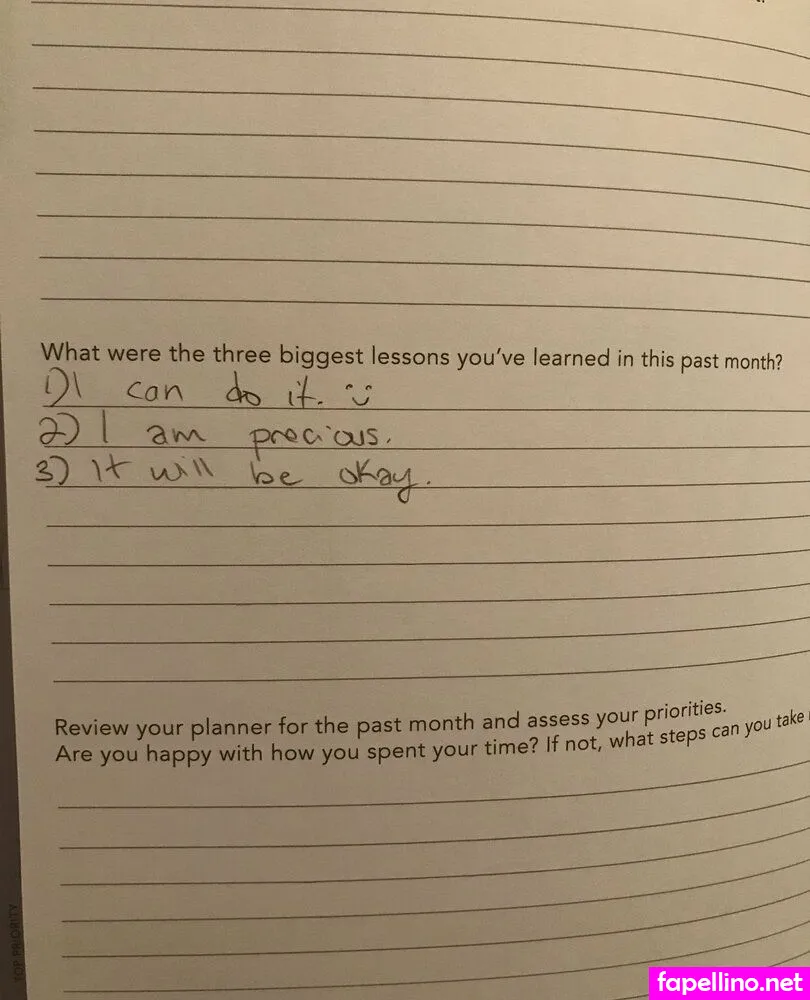 What were the three biggest lessons you've learned in this past month?
1) I can do it. :)
2) I am precious.
3) It will be okay.
Review your planner for the past month and assess your priorities.
Are you happy with how you spent your time? If not, what steps can you take
TOP PRIORITY
fapellino.net